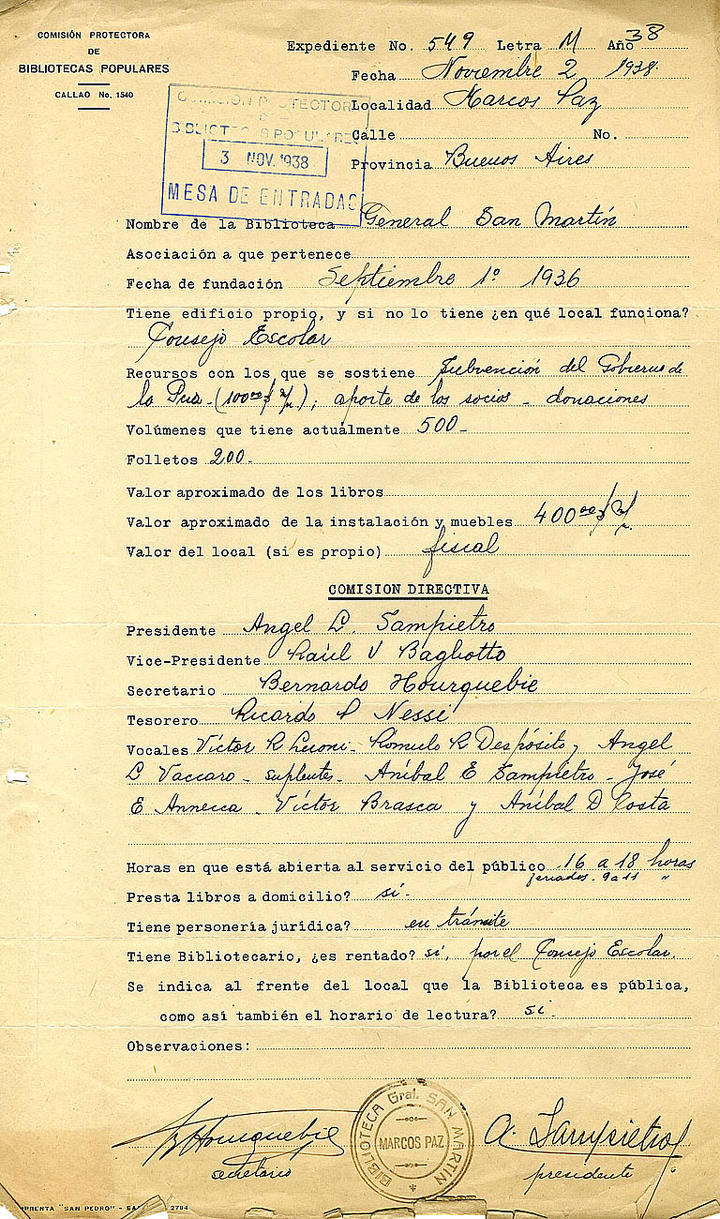 COMISIÓN PROTECTORA
DE
BIBLIOTECAS POPULARES
CALLAO No. 1540
Expediente No. 549 Letra M Año 38
Fecha Noviembre 2 1938
Localidad Marcos Paz
Calle No.
Provincia Buenos Aires
COMISIÓN PROTECTORA
DE
BIBLIOTECAS POPULARES
3 NOV. 1938
MESA DE ENTRADAS
Nombre de la Biblioteca General San Martín
Asociación a que pertenece
Fecha de fundación Septiembre 1º 1936
Tiene edificio propio, y si no lo tiene ¿en qué local funciona?
Consejo Escolar
Recursos con los que se sostiene Subvención del Gobierno de
la Pcia - (100 00 $ m/n); aporte de los socios - donaciones
Volúmenes que tiene actuálmente 500-
Folletos 200-
Valor aproximado de los libros
Valor aproximado de la instalación y muebles 400 00 $ m/n.
Valor del local (si es propio) fiscal
COMISION DIRECTIVA
Presidente Angel L. Sampietro
Vice-Presidente Raúl V Bagliotto
Secretario Bernardo Hourquebie
Tesorero Ricardo P Nessi
Vocales Víctor R Luoni - Rómulo R Despósito y Angel
L Vaccaro - suplentes - Aníbal E Sampietro - José
E Annecca - Víctor Brasca y Aníbal D Costa
Horas en que está abierta al servicio del público 16 a 18 horas
feriados - 9 a 11 "
Presta libros a domicilio? si -
Tiene personería jurídica? en trámite
Tiene Bibliotecario, ¿es rentado? si, por el Consejo Escolar.
Se indica al frente del local que la Biblioteca es pública,
como así también el horario de lectura? si -
Observaciones:
B Hourquebie
secretario
BIBLIOTECA Gral. SAN MARTIN
MARCOS PAZ
A. Sampietro
presidente
IMPRENTA "SAN PEDRO" - 2784